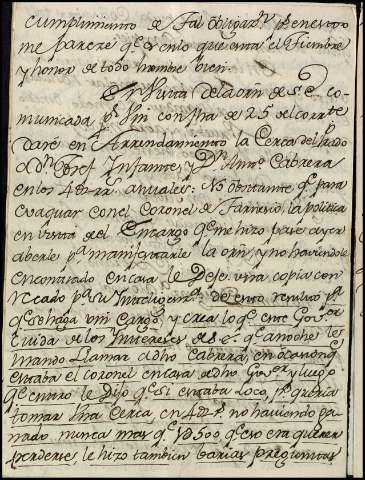 cumplimiento de tal obligaz.n
me parece q.e es en lo que esta el
y honor de todo hombre bien.
En vista dela orn de S.E. co-
municada p.r Vm con fha de 25 del corr.te
daré en Arrendamiento la Cerca del Prado
a D.n Josef Infante, y D.n Cabrera
en los 4 anuales: No obstante q.e para
evaquar con el Coronel de Farnesio, la politica
en vista del Encargo q.e me hizo pase ayer
a berle p.a manifestarle la orn, y no haviendole
encontrado en casa le Deje una copia con
recado p.a su Intelig.a de cuio
q.e se haga Vm Cargo, y crea lo q.e este Gov.or
Cuida de los Intereses de S.E. q.e anoche les
mando llamar a dho Cabrera, en ocasion q.e
estaba el coronel en casa de dho Gov.or y luego
q.e entro le Dijo q.e si estaba Loco, p.s queria
tomar Una Cerca en 4 no haviendo ga-
nado nunca mas q.e 1500 q.e eso era querer
perderse le hizo tambien barias preguntas